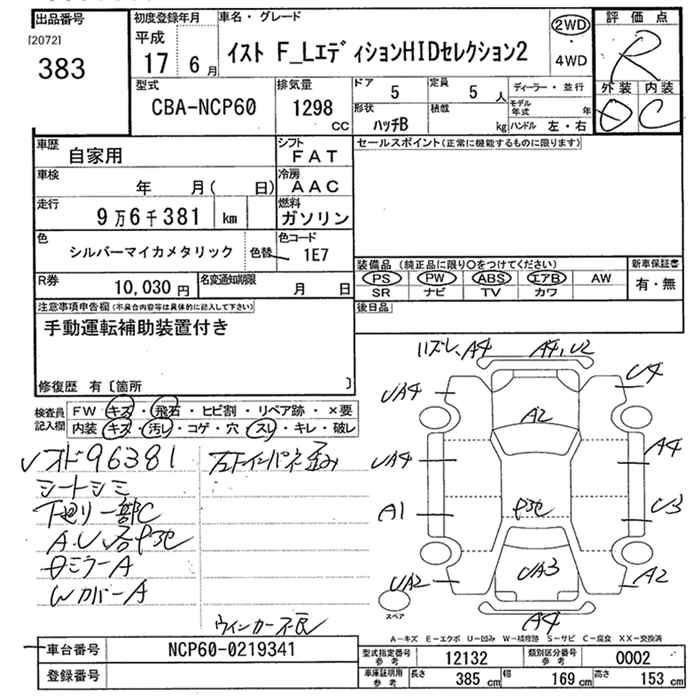 出品番号
[2072]
383
初度登録年月
平成
17 6月
車名・グレード
イスト F_LエディションHIDセレクション2
2WD
・
4WD
評価点
R
外装 内装
D C
型式
CBA-NCP60
排気量
1298
CC
ドア 5
定員 5人
ディーラー・並行
モデル年式 年
形状 ハッチB
積載 kg
ハンドル 左・右
車歴 自家用
シフト FAT
車検 年 月( 日)
冷房 AAC
走行 9万6千381 km
燃料 ガソリン
色 シルバーマイカメタリック 色替
色コード 1E7
R券 10,030円
名変通知期限 月 日
セールスポイント(正常に機能するものに限ります)
装備品 (純正品に限り○をつけてください)
新車保証書
PS PW ABS エアB AW
SR ナビ TV カワ
有・無
後日品
注意事項申告欄(不具合内容等は具体的に記入して下さい)
手動運転補助装置付き
修復歴 有[箇所 ]
検査員記入欄
FW キズ・飛石・ヒビ割・リペア跡・×要
内装 キズ・汚レ・コゲ・穴・スレ・キレ・破レ
96381
シートシミ
下廻り一部C
ミラーA
WカバーA
ウィンカー不良
ハズレ、A4 A4,U2
UA4 U4
A2
UA4 A4
A1 U3
UA3
UA2 A2
A4
スペア
A-キズ E-エクボ U-凹み W-補修跡 S-サビ C-腐食 XX-交換済
車台番号 NCP60-0219341
登録番号
型式指定番号 参考 12132
類別区分番号 参考 0002
車庫証明用 参考 長さ 385cm 幅 169cm 高さ 153cm